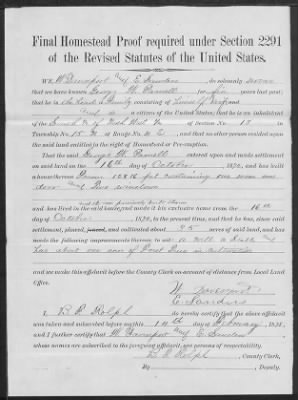 Final Homestead Proof required under Section 2291
of the Revised Statutes of the United States.
WE, W Davenport and E Sanders do solemnly swear
that we have known George W. Parnell for five years last past;
that he is the head of a family consisting of
and a citizen of the United States; that he is an inhabitant
of the of section No. 18 in
Township No. 15 N of Range No. 4 E, and that no other person resided upon the
said land entitled to the right of Homestead or Pre-emption.
That the said George W. Parnell entered upon and made settlement
on said land on the 16th day of October, 1870, and has built
a house thereon 10 x 16 ft containing one room one
door and two windows
and has lived in the said house and made it his exclusive home from the 16th
day of October, 1870, to the present time, and that he has, since said
settlement, plowed, and cultivated about 25 acres of said land, and has
made the following improvements thereon to wit: a well a stable and
has about one acre of Forest Trees in cultivation
and we make this affidavit before the County Clerk on account of distance from Local Land
Office.
W Davenport
E. Sanders
I, B. R. Rolph, do hereby certify that the above affidavit
was taken and subscribed before me this 14th day of February, 18
and I further certify that W Davenport and E Sanders
whose names are subscribed to the foregoing affidavit, are persons of respectability.
B. R. Rolph, County Clerk,
By, Deputy.